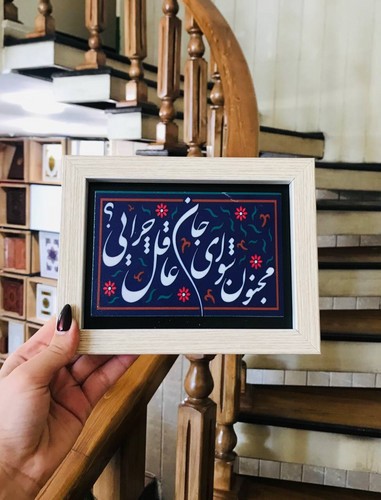 مجنون شو ای جان عاقل چرایی؟